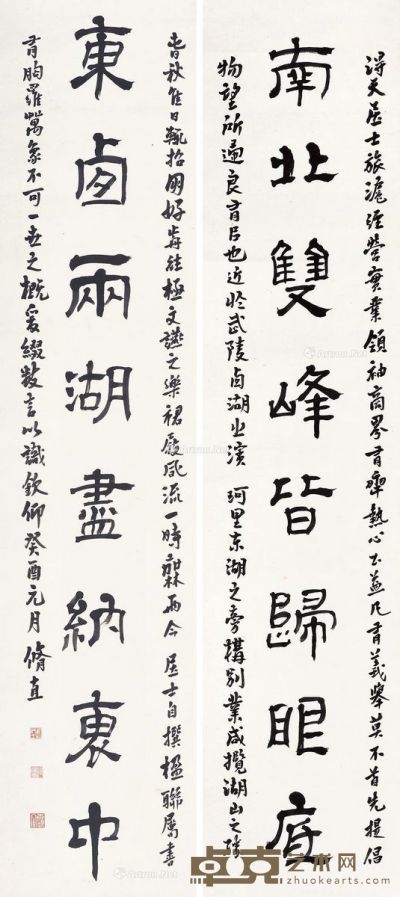 南北雙峰皆歸眼底
東卥兩湖盡納裏中
天居士旅滬經營實業領袖商界有熱心公益凡有義舉莫不首先提倡
物望所遍良有以也近於武陵卥湖之濱珂里東湖之旁構別業咸攬湖山之勝
春秋佳日輒招朋好能極文讌之樂裙屐風流一時無兩今居士自撰楹聯屬書
有胸羅萬象不可一世之概爰綴數言以識欽仰癸酉元月脩直
卓克艺术网
zhuokearts.com